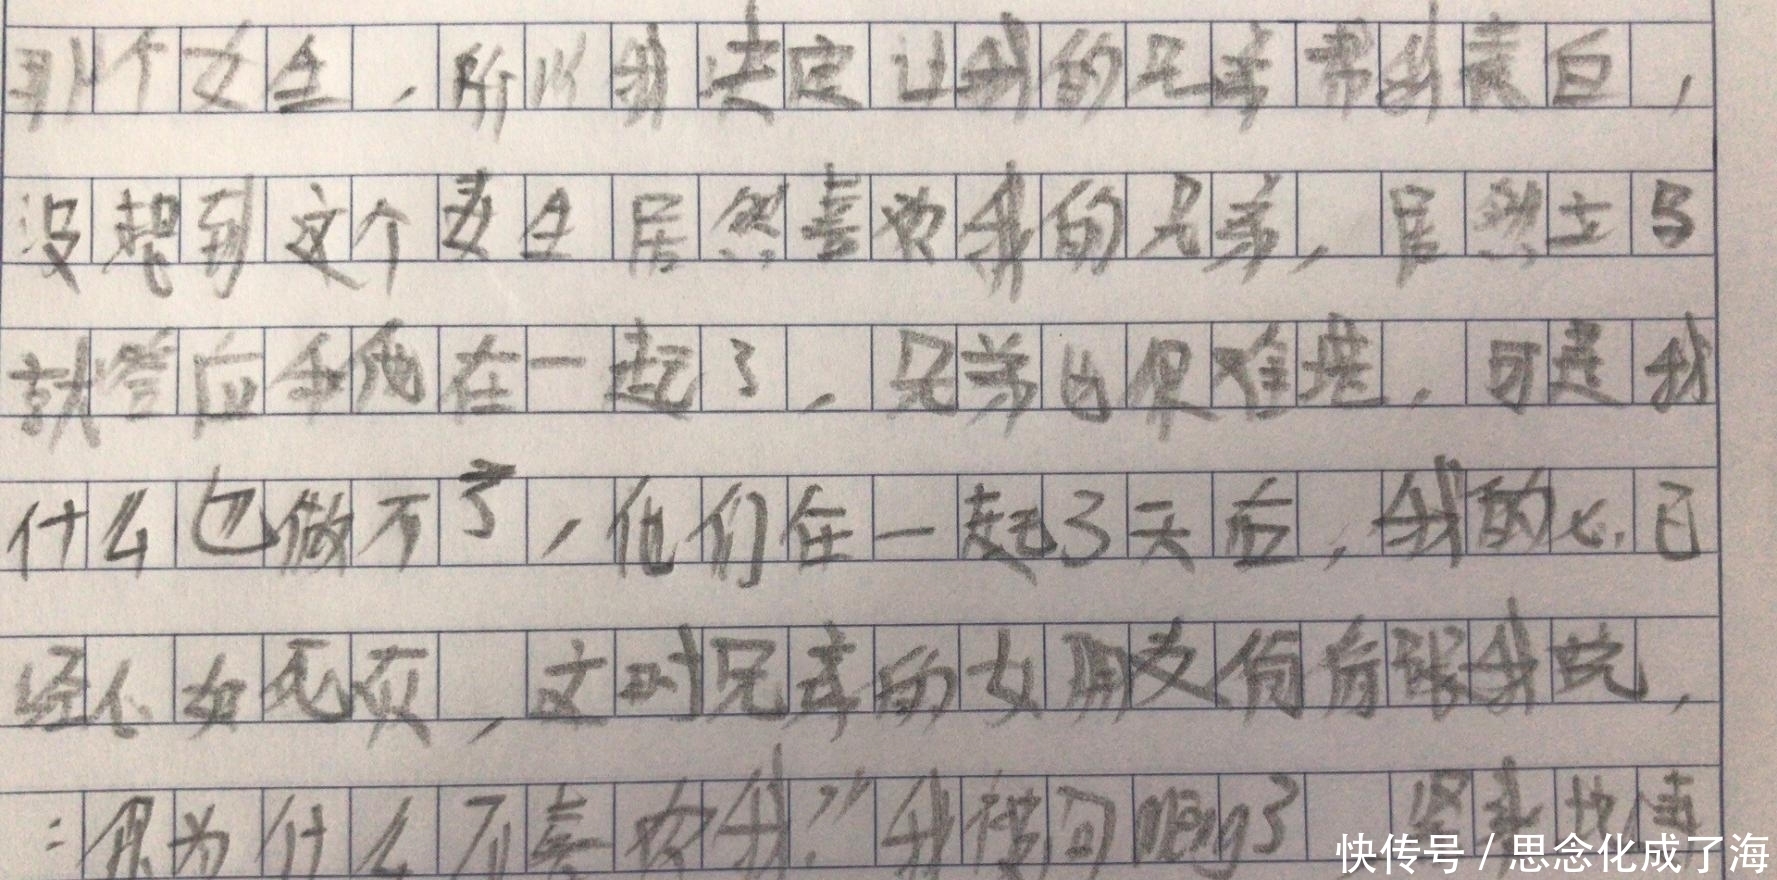 那个女生，所以我决定让我的兄弟帮我表白，
没想到这个女生居然喜欢我的兄弟，居然立马
就答应和他在一起了，兄弟也很难堪，可是我
什么也做不了，他们在一起3天后，我的心已
经心如死灰，这时兄弟的女朋友偷偷跟我说，
：你为什么不喜欢我？”我被问meng了
快传号 / 思念化成了海